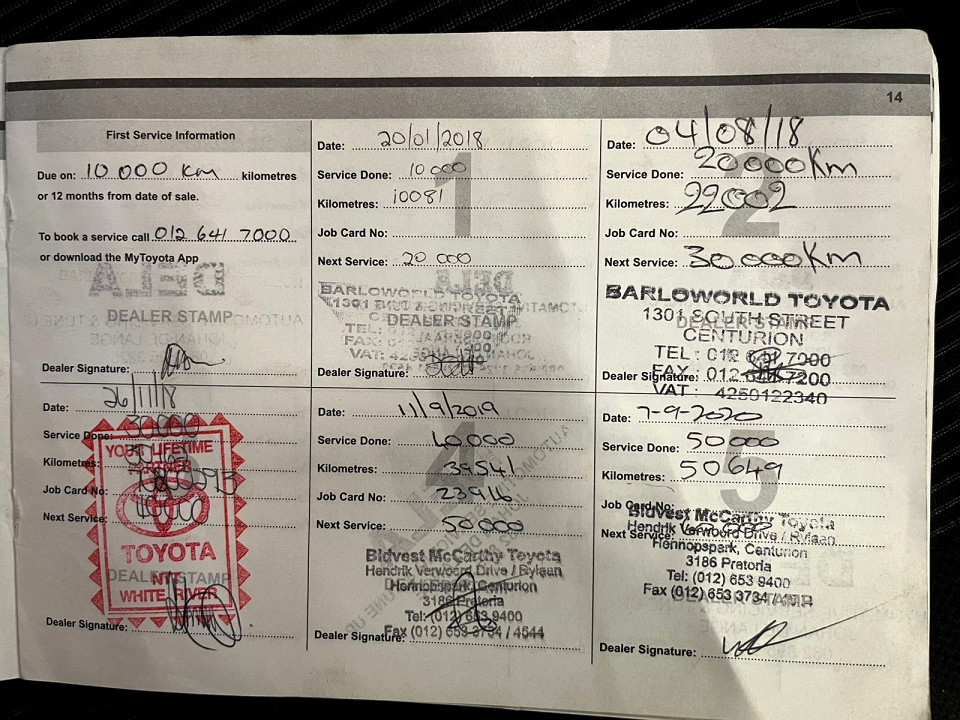 14
First Service Information
Due on: 10 000 km kilometres
or 12 months from date of sale.
To book a service call 012 641 7000
or download the MyToyota App
DEALER STAMP
Dealer Signature:
Date: 20/01/2018
Service Done: 10 000
Kilometres: 10081
Job Card No:
Next Service: 20 000
1
BARLOWORLD TOYOTA
1301 SOUTH STREET
DEALER STAMP
TEL:
FAX:
VAT:
Dealer Signature:
Date: 04/08/18
Service Done: 20000Km
Kilometres: 22002
Job Card No:
Next Service: 30000Km
2
BARLOWORLD TOYOTA
1301 SOUTH STREET
DEALER STAMP
CENTURION
TEL : 012 7200
FAX : 012 7200
Dealer Signature:
VAT : 4250122340
Date: 26/11/18
Service Done: 30000
Kilometres:
Job Card No:
Next Service: 40000
YOUR LIFETIME
TOYOTA
DEALER STAMP
NTT
WHITE RIVER
Dealer Signature:
Date: 11/9/2019
Service Done: 40000
Kilometres: 39541
Job Card No: 23916
Next Service: 50000
4
Bidvest McCarthy Toyota
Hendrik Verwoerd Drive / Rylaan
Hennopspark, Centurion
3186 Pretoria
Tel: (012) 653 9400
Fax (012) 653 3734 / 4544
Dealer Signature:
Date: 7-9-2020
Service Done: 50000
Kilometres: 50649
Job Card No:
Next Service:
5
Bidvest McCarthy Toyota
Hendrik Verwoerd Drive / Rylaan
Hennopspark, Centurion
3186 Pretoria
Tel: (012) 653 9400
Fax (012) 653 3734 /
DEALER STAMP
Dealer Signature: